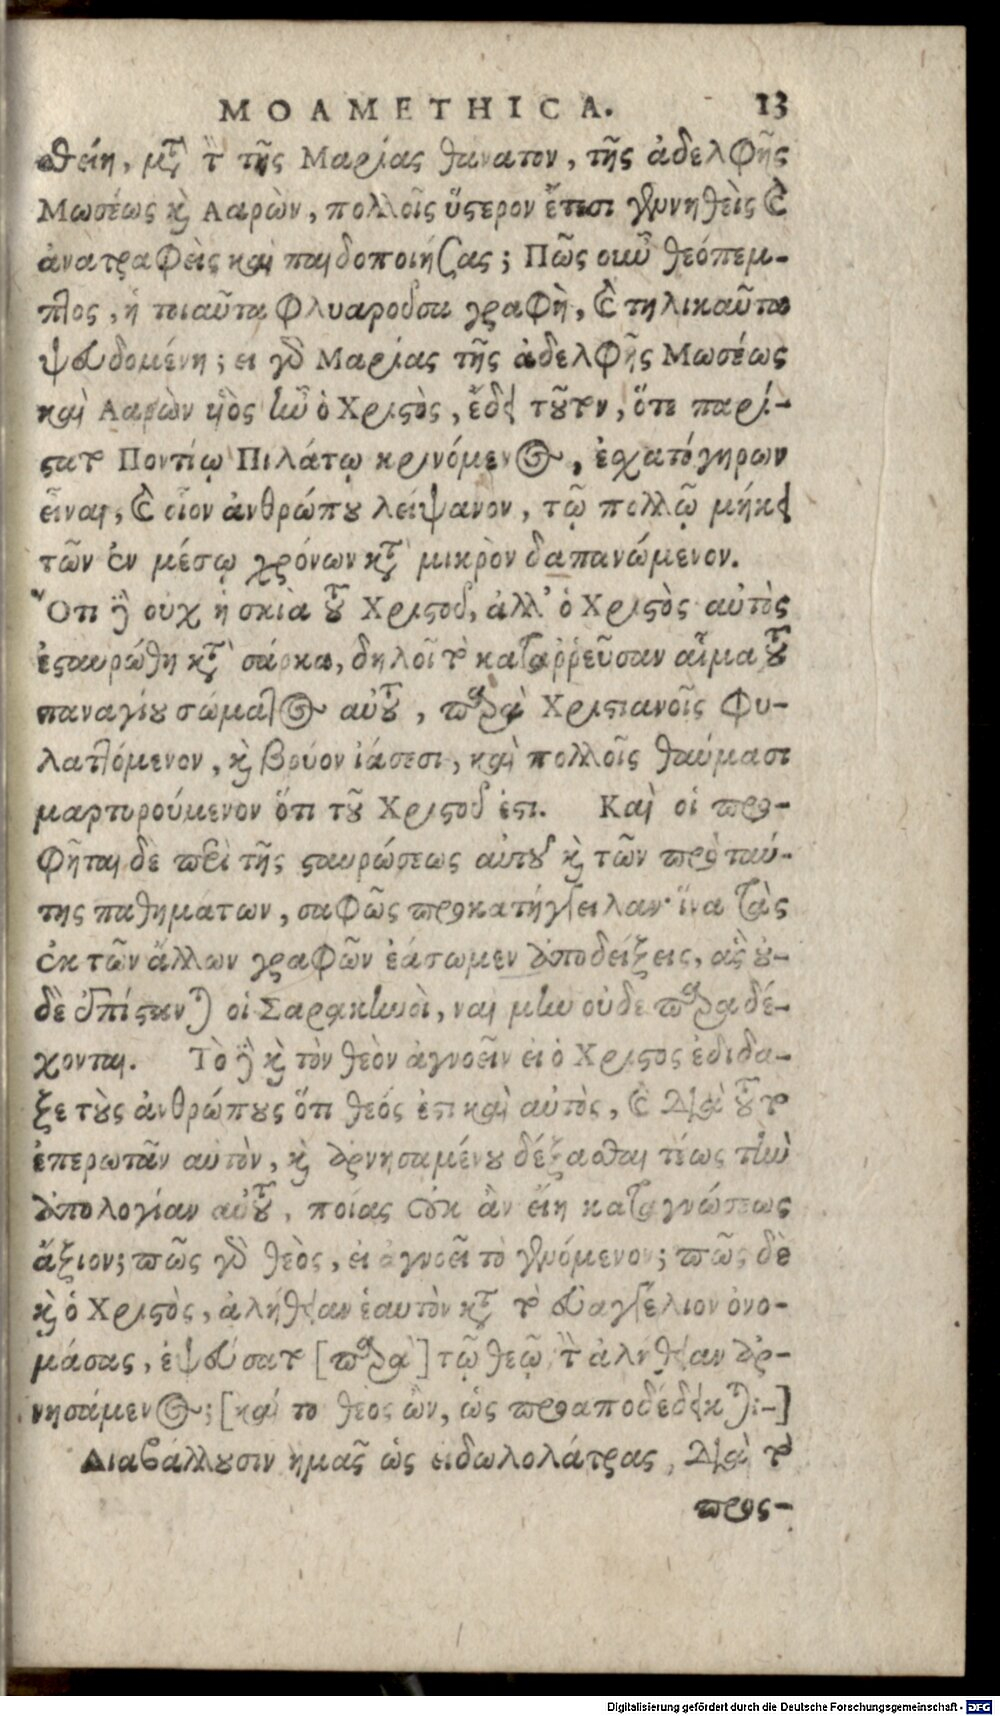 MOAMETHICA. 13
θείη, μτ̀ τ̀ τῆς Μαρίας θανατον, τῆς ἀδελφῆς
Μωσέως κ̀ Ααρὼν, πολλοῖς ὕστερον ἔτεσι γεννηθεὶς καὶ
ἀνατραφεὶς καὶ παιδοποιήσας; Πῶς οιυῦ θεόπεμ-
πτος, ἡ τοιαῦτα φλυαροῦσα γραφὴ, καὶ τηλικαῦτα
ψευδομένη; ει γὸ Μαρίας τῆς ἀδελφῆς Μωσέως
καὶ Ααρὼν ὑὸς ἰῶ ὁ Χριστὸς, ἔδει τοῦτον, ὅτε παρί-
στατο Ποντίῳ Πιλάτῳ κρινόμενος, ἐσχατόγηρων
εἶναι, καὶ οἷον ἀνθρώπου λείψανον, τῷ πολλῷ μήκει
τῶν ἐν μέσῳ χρόνων κτ̀ μικρὸν δαπανώμενον.
Ὅτι ἢ οὐχ ἡ σκιὰ τοῦ Χριστοῦ, ἀλλ' ὁ Χριστὸς αὐτὸς
ἐσταυρώθη κτ̀ σάρκα, δηλοῖ τὸ καταῤῥεῦσαν αἷμα τοῦ
παναγίου σώματος αὐτοῦ, παρὰ Χριστιανοῖς φυ-
λαττόμενον, κ̀ βρύον ἰάσεσι, καὶ πολλοῖς θαύμασι
μαρτυρούμενον ὅτι τοῦ Χριστοῦ ἐστι. Καὶ οἱ προ-
φῆται δε περὶ τῆς σταυρώσεως αὐτοῦ κ̀ τῶν πρὸ ταύ-
της παθημάτων, σαφῶς προκατήγγειλαν· ἵνα τὰς
ἐκ τῶν ἄλλων γραφῶν ἐάσωμεν ἀποδείξεις, ἃς οὐ-
δὲ ἐπίστανται οἱ Σαρακηνοὶ, ναι μὴν οὐδε παραδέ-
χονται. Τὸ ἢ κ̀ τὸν θεὸν ἀγνοεῖν ει ὁ Χριστος ἐδιδα-
ξε τοὺς ἀνθρώπους ὅτι θεός ἐστι καὶ αὐτὸς, καὶ διὰ τοῦτο
ἐπερωτᾶν αὐτὸν, κ̀ ἀρνησαμένου δέξασθαι τέως τὴν
ἀπολογίαν αὐτοῦ, ποίας οὐκ ἂν εἴη καταγνώσεως
ἄξιον; πῶς γὸ θεὸς, ει ἀγνοεῖ τὸ γενόμενον; πῶς δὲ
κ̀ ὁ Χριστὸς, ἀλήθειαν ἑαυτὸν κτ̀ τὸ εὐαγγέλιον ὀνο-
μάσας, ἐψεύσατο [παρὰ] τῷ θεῷ τὴν ἀλήθειαν ἀρ-
νησάμενος; [καί το θεὸς ὢν, ὡς προαποδέδεικται:-]
Διαβάλλουσιν ἡμᾶς ὡς ειδωλολάτρας, διὰ τὸ
προς-
Digitalisierung gefördert durch die Deutsche Forschungsgemeinschaft - DFG